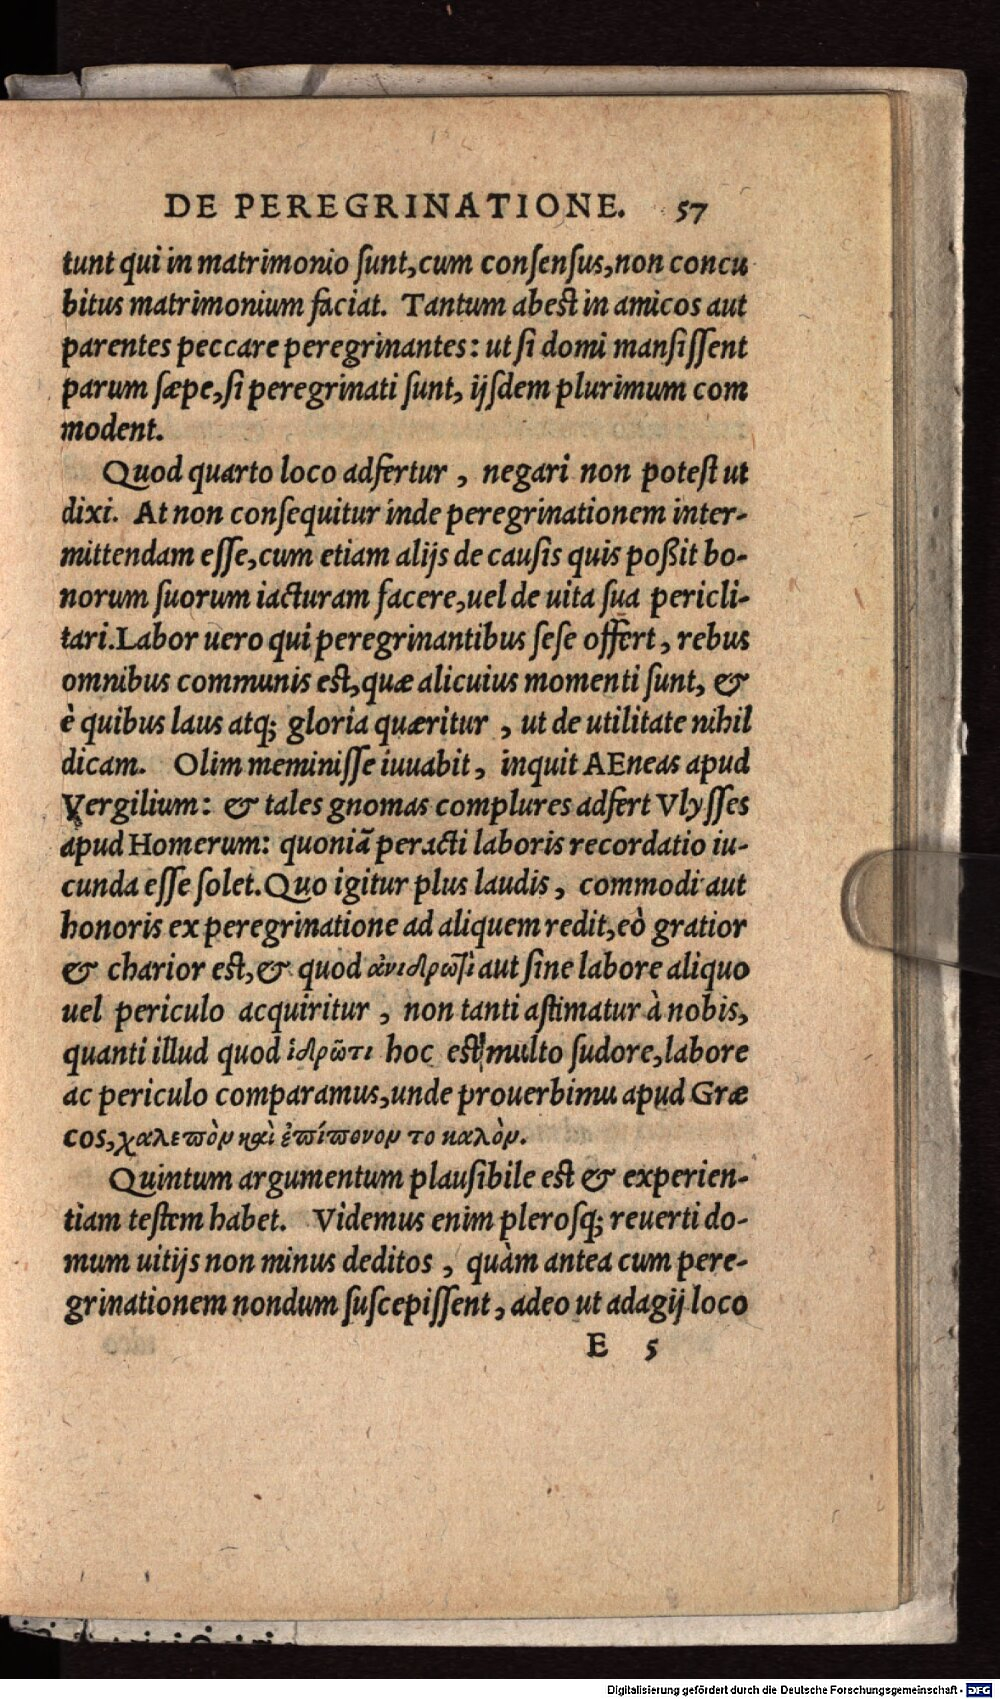 DE PEREGRINATIONE. 57
tunt qui in matrimonio ſunt, cum conſenſus, non concu
bitus matrimonium faciat. Tantum abeſt in amicos aut
parentes peccare peregrinantes: ut ſi domi manſiſſent
parum ſæpe, ſi peregrinati ſunt, ijſdem plurimum com
modent.
Quod quarto loco adfertur, negari non poteſt ut
dixi. At non conſequitur inde peregrinationem inter-
mittendam eſſe, cum etiam alijs de cauſis quis poßit bo-
norum ſuorum iacturam facere, uel de uita ſua pericli-
tari. Labor uero qui peregrinantibus ſeſe offert, rebus
omnibus communis eſt, quæ alicuius momenti ſunt, &
è quibus laus atq; gloria quæritur, ut de utilitate nihil
dicam. Olim meminiſſe iuuabit, inquit AEneas apud
Vergilium: & tales gnomas complures adfert Vlyſſes
apud Homerum: quoniã peracti laboris recordatio iu-
cunda eſſe ſolet. Quo igitur plus laudis, commodi aut
honoris ex peregrinatione ad aliquem redit, eò gratior
& charior eſt, & quod ἀνιδρωτὶ aut ſine labore aliquo
uel periculo acquiritur, non tanti æſtimatur à nobis,
quanti illud quod ἱδρῶτι hoc eſt multo ſudore, labore
ac periculo comparamus, unde prouerbimu apud Græ
cos, χαλεπὸν καὶ ἐπίπονον το καλὸν.
Quintum argumentum plauſibile eſt & experien-
tiam teſtem habet. Videmus enim pleroſq; reuerti do-
mum uitijs non minus deditos, quàm antea cum pere-
grinationem nondum ſuſcepiſſent, adeo ut adagij loco
E 5
Digitalisierung gefördert durch die Deutsche Forschungsgemeinschaft - DFG